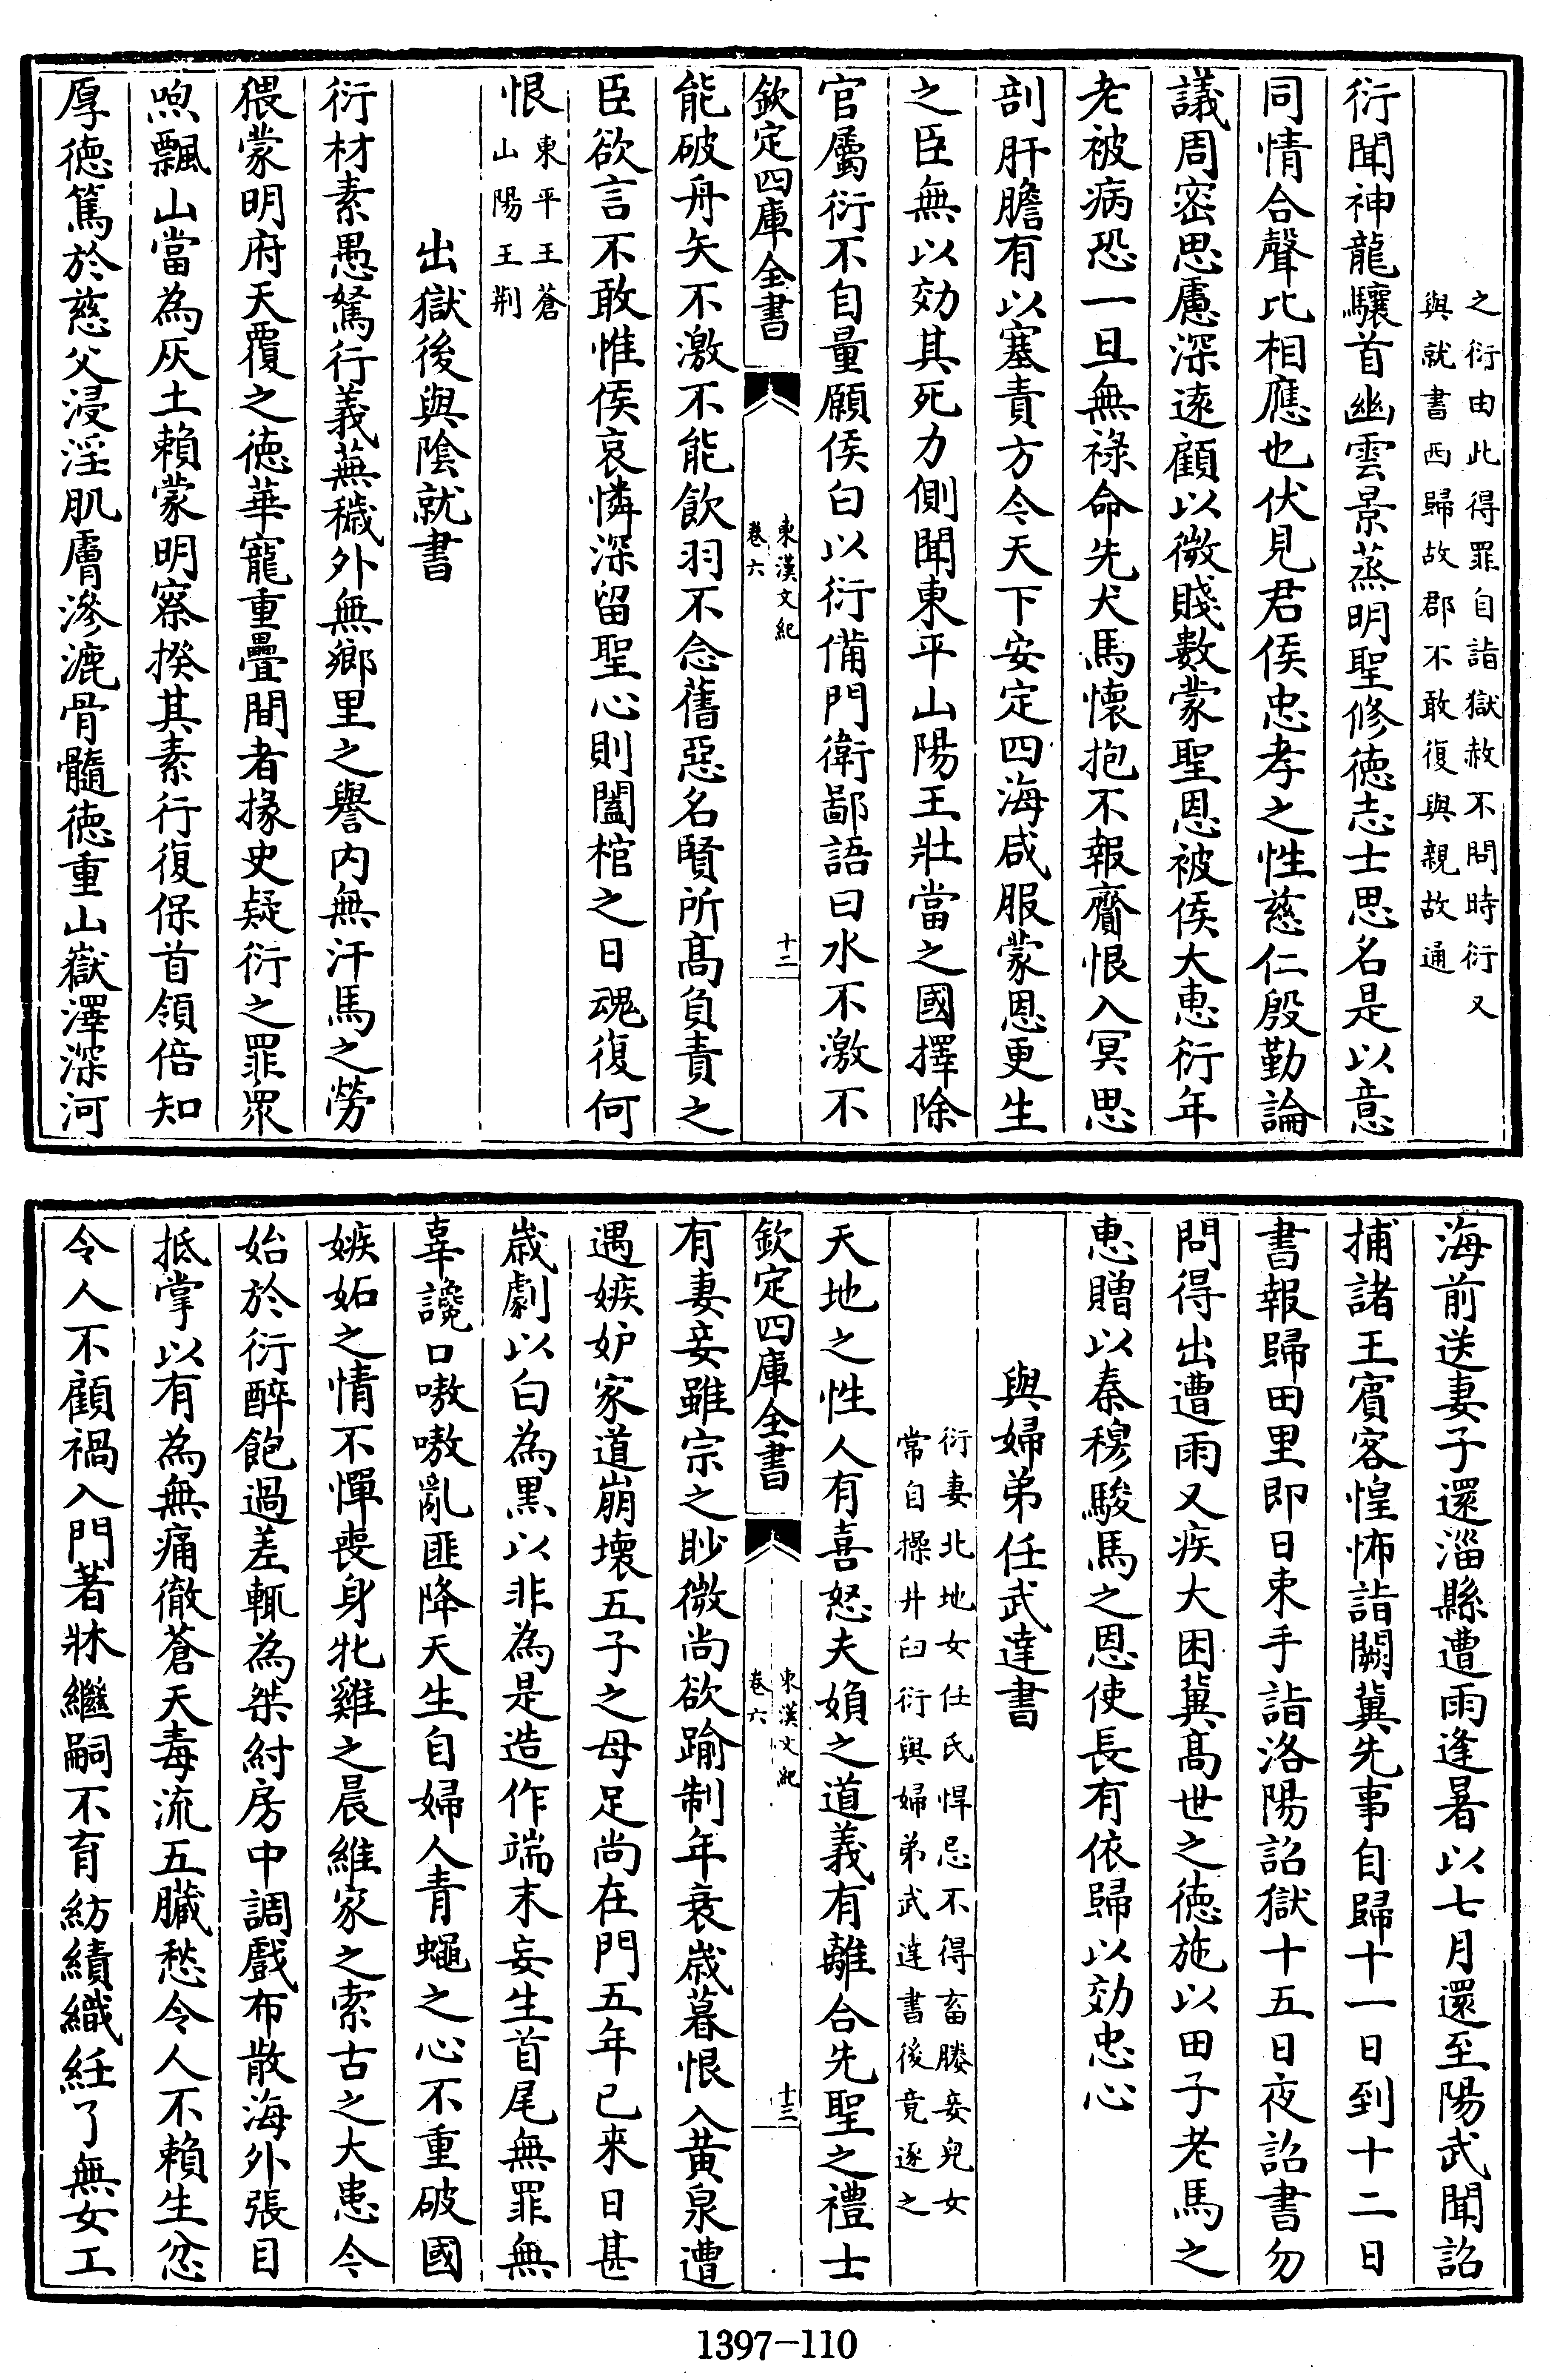 之衍由此得罪自詣獄赦不問時衍又
與就書西歸故郡不敢復與親故通
衍聞神龍驤首幽雲景蒸明聖修德志士思名是以意
同情合聲比相應也伏見君侯忠孝之性慈仁殷勤論
議周密思慮深逺顧以微賤數蒙聖恩被侯大惠衍年
老被病恐一旦無祿命先犬馬懷抱不報齎恨入冥思
剖肝膽有以塞責方今天下安定四海咸服蒙恩更生
之臣無以効其死力側聞東平山陽王壯當之國擇除
官屬衍不自量願侯白以衍備門衛鄙語曰水不激不
欽定四庫全書
東漢文紀
卷六
十二
能破舟矢不激不能飲羽不念舊惡名賢所髙負責之
臣欲言不敢惟侯哀憐深留聖心則闔棺之日魂復何
恨
東平王蒼
山陽王荆
出獄後與陰就書
衍材素愚駑行義蕪穢外無鄉里之譽内無汗馬之勞
猥蒙明府天覆之徳華寵重疊間者掾史疑衍之罪衆
喣飄山當為灰土賴蒙明察揆其素行復保首領倍知
厚徳篤於慈父浸淫肌膚滲漉骨髓徳重山嶽澤深河
海前送妻子還淄縣遭雨逢暑以七月還至陽武聞詔
捕諸王賓客惶怖詣闕冀先事自歸十一日到十二日
書報歸田里即日束手詣洛陽詔獄十五日夜詔書勿
問得出遭雨又疾大困冀髙世之徳施以田子老馬之
惠贈以秦穆駿馬之恩使長有依歸以効忠心
與婦弟任武達書
衍妻北地女任氏悍忌不得畜媵妾兒女
常自操井臼衍與婦弟武達書後竟逐之
天地之性人有喜怒夫婦之道義有離合先聖之禮士
欽定四庫全書
東漢文紀
卷六
十三
有妻妾雖宗之眇微尚欲踰制年衰歳暮恨入黄泉遭
遇嫉妒家道崩壞五子之母足尚在門五年已来日甚
歳劇以白為黒以非為是造作端末妄生首尾無罪無
辜讒口嗷嗷亂匪降天生自婦人青蠅之心不重破國
嫉妬之情不憚喪身牝雞之晨維家之索古之大患今
始於衍醉飽過差輒為桀紂房中調戲布散海外張目
抵掌以有為無痛徹蒼天毒流五臟愁令人不賴生忿
令人不顧禍入門著牀繼嗣不育紡績織紝了無女工
1397-110